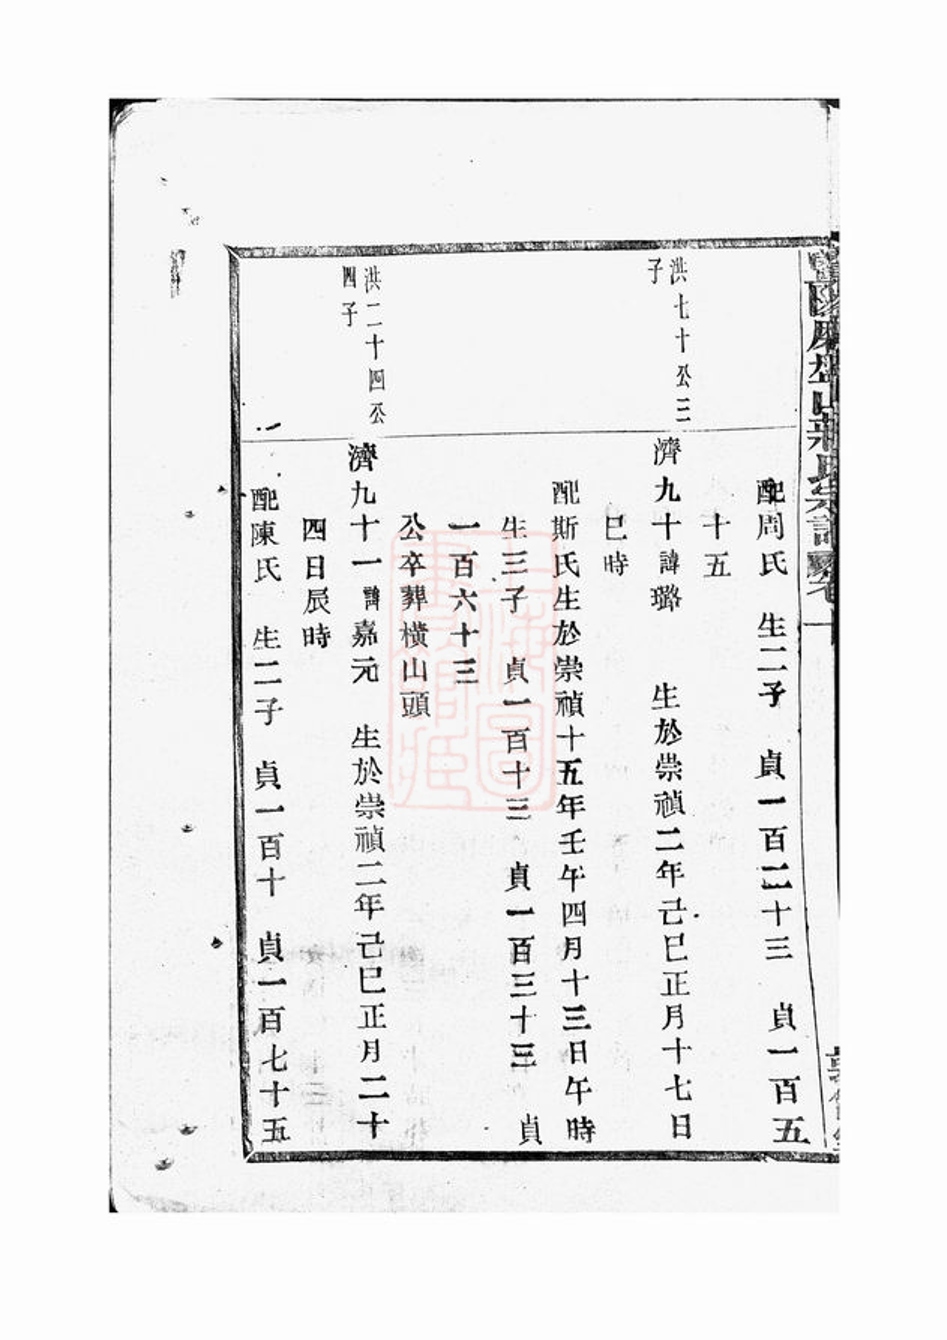 暨陽磨盤山蔣氏宗譜卷十
配周氏 生二子 貞一百二十三 貞一百五
十五
洪七十公三
子
濟九十諱璐 生於崇禎二年己巳正月十七日
巳時
配斯氏生於崇禎十五年壬午四月十三日午時
生三子 貞一百十三 貞一百三十三 貞
一百六十三
公卒葬橫山頭
洪二十四公
四子
濟九十一諱嘉元 生於崇禎二年己巳正月二十
四日辰時
配陳氏 生二子 貞一百十 貞一百七十五
上海圖
書館藏